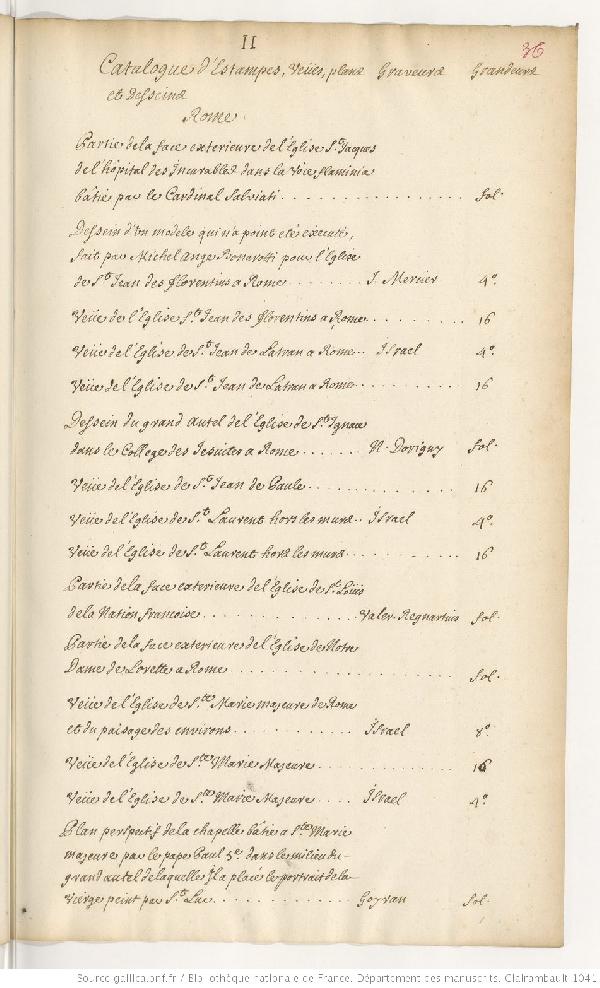 II
36
Catalogue d'Estampes, Veües, plans Graveurs Grandeurs
et desseins
Rome
Partie de la face exterieure de l'Eglise St. Jacques
de l'hôpital des Incurables dans la Voie flaminia
bâtie par le Cardinal Salviati . . . fol.
Dessein d'un modele qui n'a point eté executé,
fait par Michel Ange Bonarotti pour l'Eglise
de St. Jean des florentins a Rome . . . J. Mercier 4º.
Veüe de l'Eglise St. Jean des florentins a Rome . . . 16
Veüe de l'Eglise de St. Jean de Latran a Rome . . Israel 4º.
Veüe de l'Eglise de St. Jean de Latran a Rome . . . 16
Dessein du grand autel de l'Eglise de St. Ignace
dans le College des Jesuites a Rome . . . N. Dorigny fol.
Veüe de l'Eglise de St. Jean de Paule . . . 16
Veüe de l'Eglise de St. Laurent hors les murs . . Israel 4º.
Veüe de l'Eglise de St. Laurent hors les murs . . . 16
Partie de la face exterieure de l'Eglise de St. Loüis
de la Nation francoise . . . Valer. Regnartius fol.
Partie de la face exterieure de l'Eglise de Notre
Dame de Lorette a Rome . . . fol.
Veüe de l'Eglise de Ste. Marie majeure de Rome
et du paisage des environs . . . Israel 8º.
Veüe de l'Eglise de Ste. Marie Majeure . . . 16
Veüe de l'Eglise de Ste. Marie Majeure . . . Israel 4º.
Plan perspectif de la chapelle bâtie a Ste. Marie
majeure par le pape Paul 5e. dans le milieu du
grand autel de laquelle Il a placé le portrait de la
Vierge peint par St. Luc . . . Goyran fol.
Source gallica.bnf.fr / Bibliothèque nationale de France. Département des manuscrits. Clairambault 1041